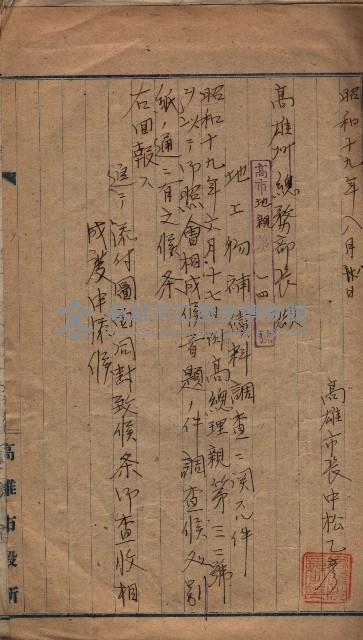 昭和十九年八月 日
高雄市長中松乙彥
高雄州總務部長殿
高市地親第一四 號
地上物補償料調查ニ関スル件
昭和十九年六月十七日附高總理親第三二號
ヲ以テ御照會相成候首題ノ件調查候処別
紙ノ通ニ有之候条
右回報ス
追テ添付圖面同封致候条御查收相
成度申添候
高雄市役所